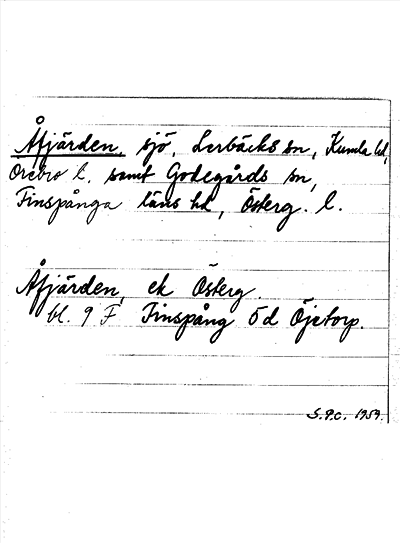 Åfjärden, sjö, Lerbäcks sn, Kumla hd,
Örebro l. samt Godegårds sn,
Finspånga läns hd, Österg. l.
Åfjärden, ek Österg.
bl. 9 F Finspång 5d Öjetorp.
S.P.C. 1959.